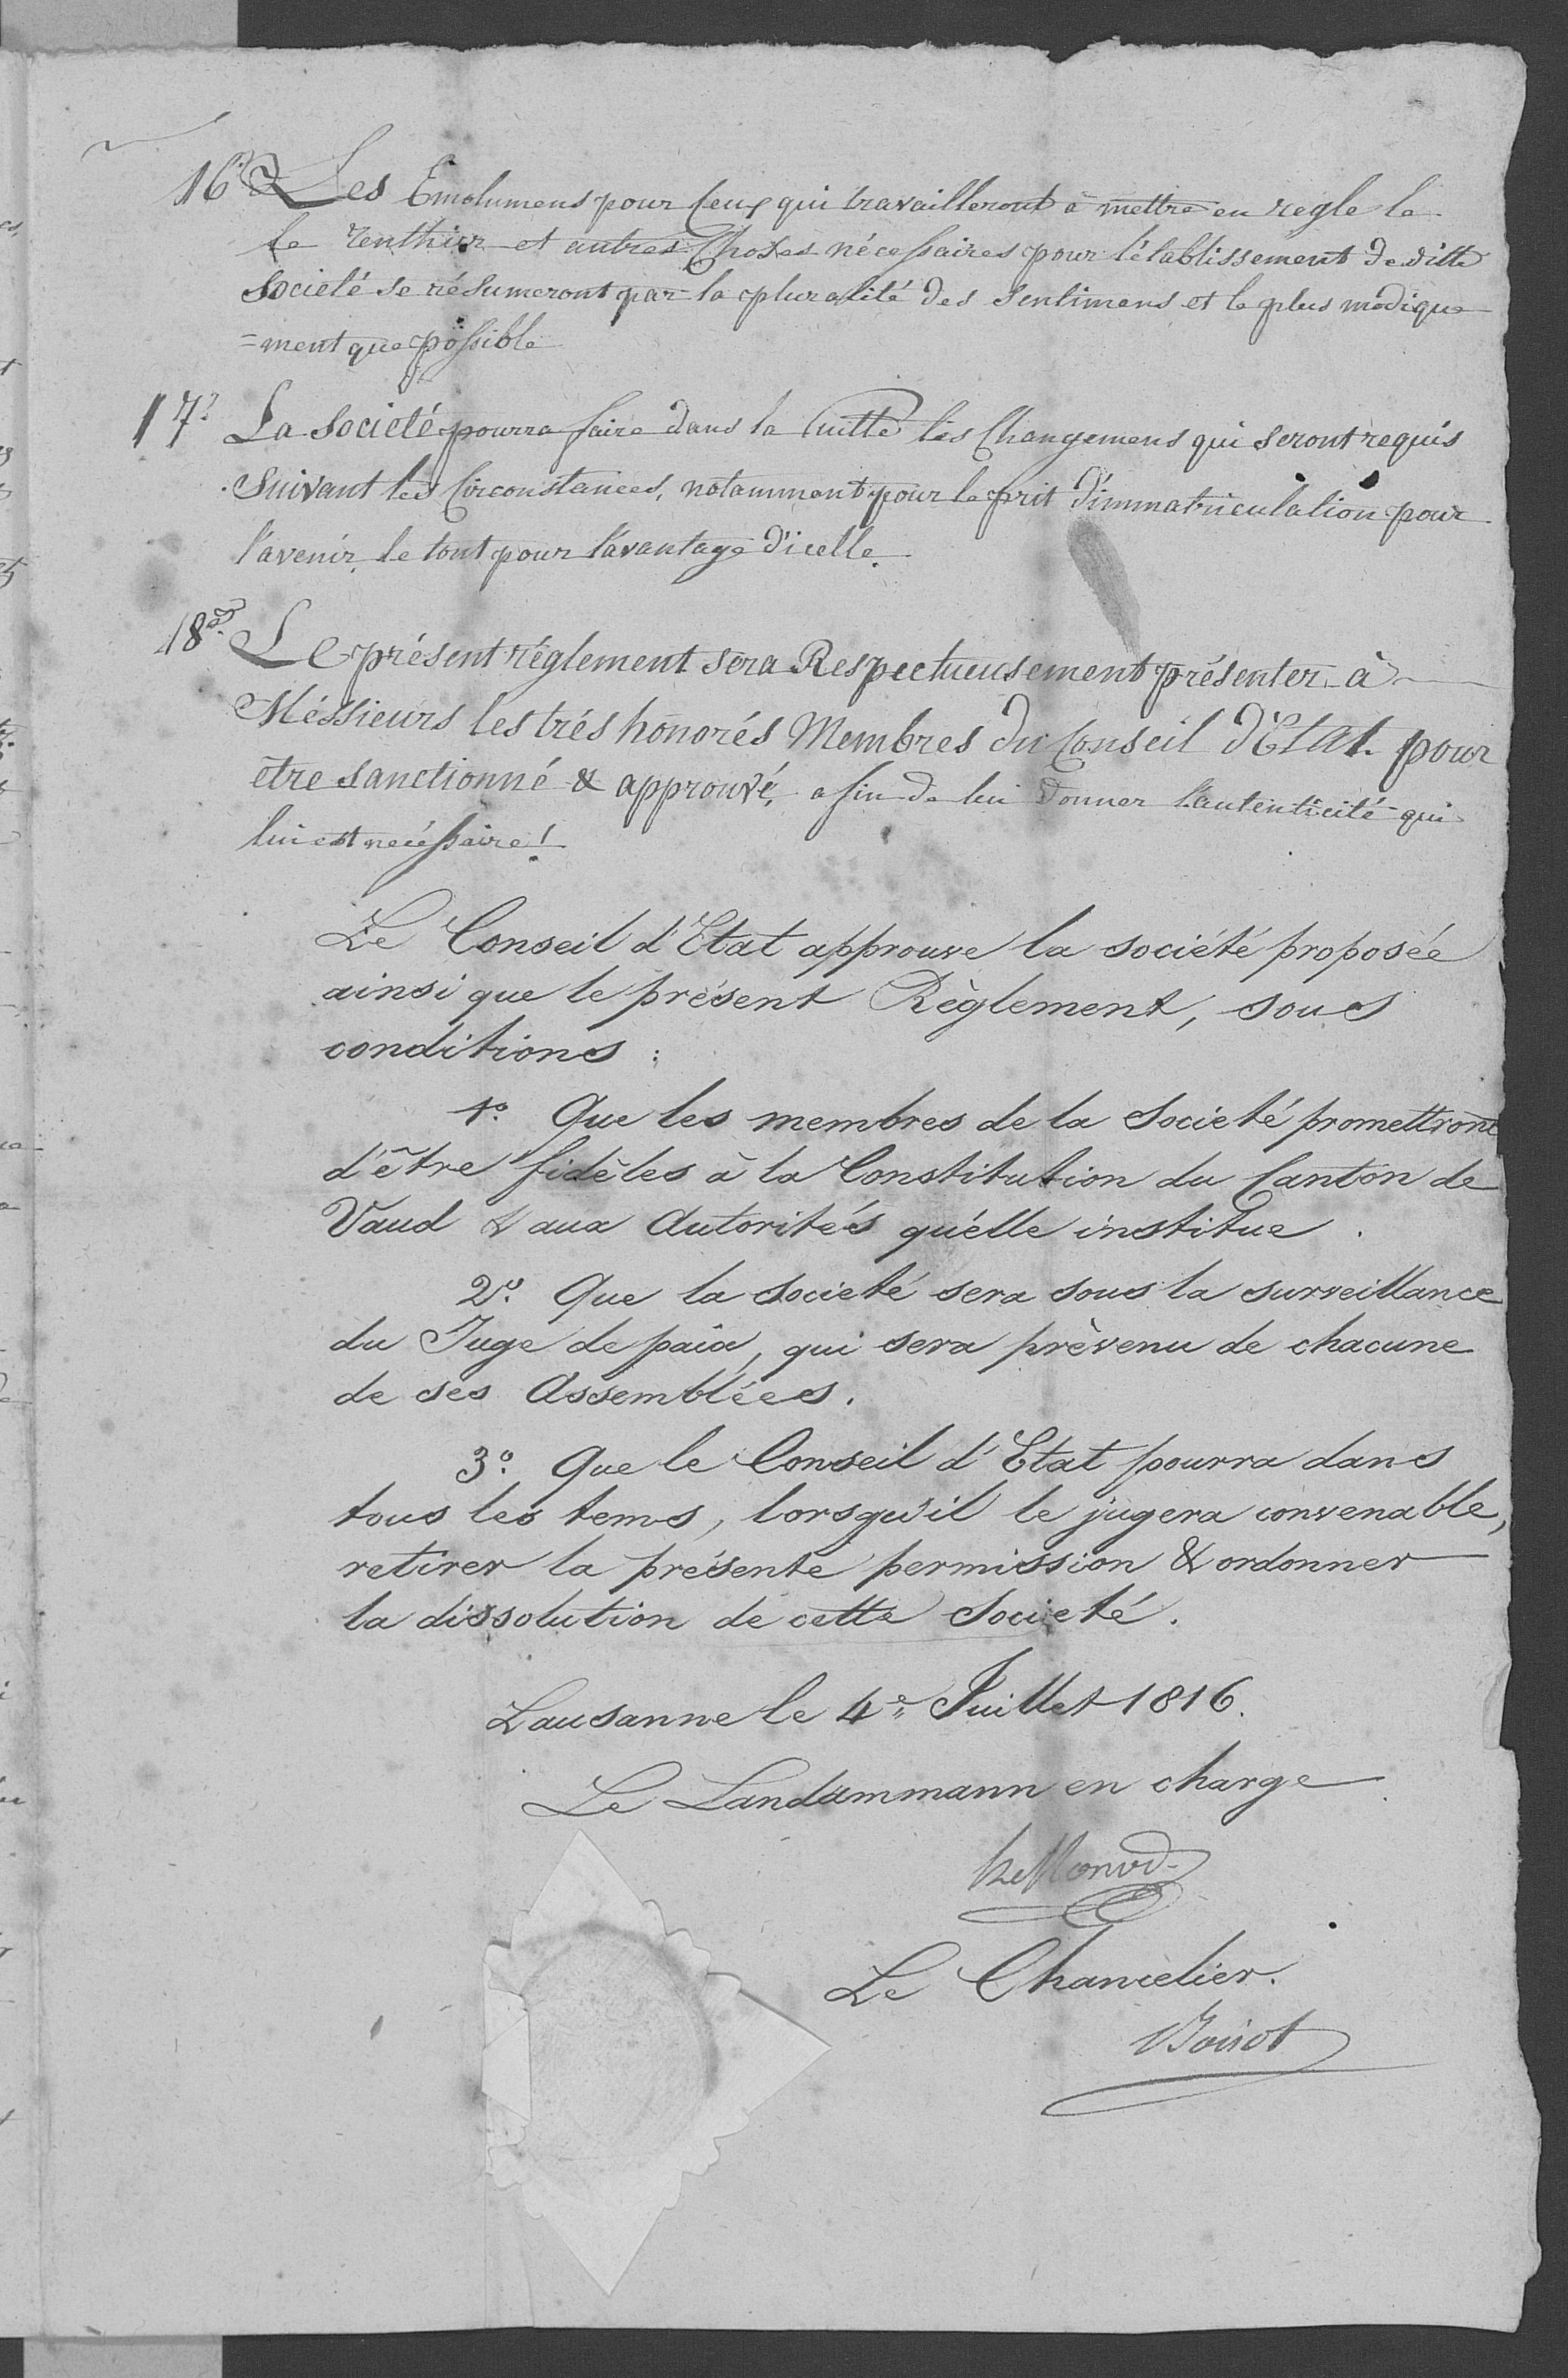 16° Les Emolumens pour Ceux qui travailleront à mettre en regle le
le renthier et autres Choses nécessaires pour l'établissement de ditte
Société se résumeront par la pluralité des Sentimens et le plus modique
=ment que possible
17° La Société pourra faire dans la Suitte les Changemens qui seront requis
Suivant les Circonstances, notamment pour le prit d'immatriculation pour
l'avenir, le tout pour l'avantage d'icelle.
18° Le présent réglement sera Respectueusement présenter à
Méssieurs les trés honorés Membres du Conseil d'Etat pour
etre sanctionné & approuvé, afin de lui donner l'autenticité qui
lui est necéssaire!
Le Conseil d'Etat approuve la société proposée
ainsi que le présent Règlement, sous
conditions:
1° Que les membres de la Societé promettront
d'être fidèles à la Constitution du Canton de
Vaud & aux Autorités qu'elle institue.
2° Que la societé sera sous la surveillance
du Juge de paix, qui sera prèvenu de chacune
de ses Assemblées.
3° Que le Conseil d'Etat pourra dans
tous les tems, lorsqu'il le jugera convenable,
retirer la présente permission & ordonner
la dissolution de cette Societé.
Lausanne le 4e Juillet 1816.
Le Landammann en charge
Monod
Le Chancelier.
Boisot